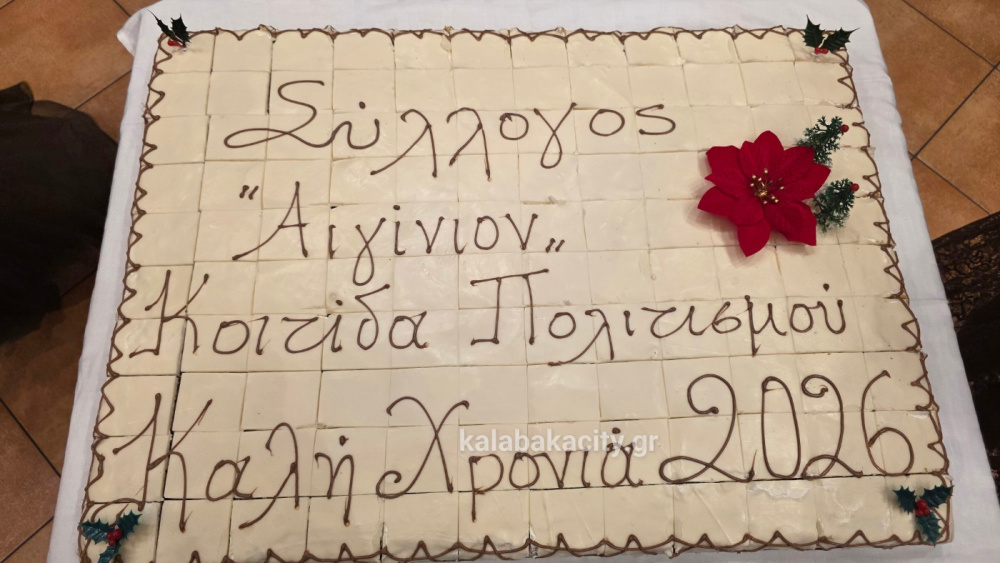 Σύλλογος
"Αιγίνιον„
Κοιτίδα Πολιτισμού
Καλή Χρονιά 2026
kalabakacity.gr